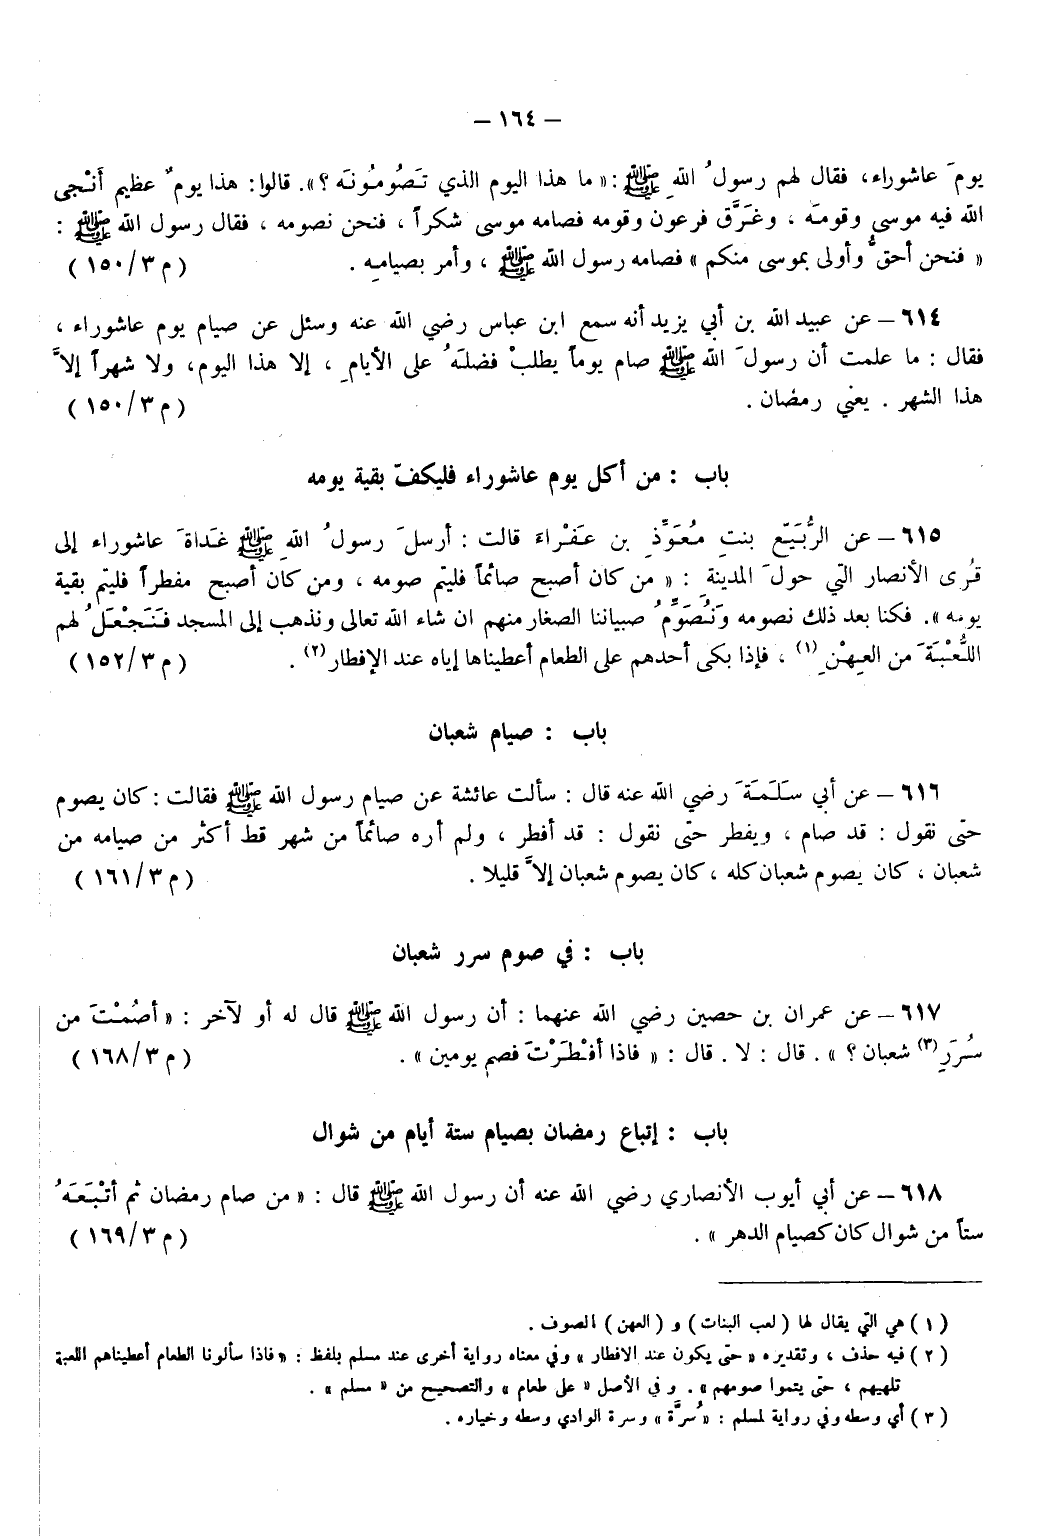 — ١٦٤ —
يومَ عاشوراء، فقال لهم رسولُ اللهِ ﷺ :« ما هذا اليوم الذي تَصُومُونَه ؟». قالوا: هذا يومٌ عظيم أَنْجى
الله فيه موسى وقومَه ، وغَرَّق فرعون وقومه فصامه موسى شكراً ، فنحن نصومه ، فقال رسول الله ﷺ :
« فنحن أحقُّ وأولى بموسى منكم » فصامه رسول الله ﷺ ، وأمر بصيامِه . ( م ٣/١٥٠ )
٦١٤ – عن عبيد الله بن أبي يزيد أنه سمع ابن عباس رضي الله عنه وسئل عن صيام يوم عاشوراء ،
فقال : ما علمت أن رسولَ الله ﷺ صام يوماً يطلبْ فضلَهُ على الأيامِ ، إلا هذا اليوم، ولا شهراً إلاَّ
هذا الشهر . يعني رمضان . ( م ٣/١٥٠ )
باب : من أكل يوم عاشوراء فليكفّ بقية يومه
٦١٥ – عن الرُّبَيّع بنتِ مُعَوِّذِ بن عَفْراءَ قالت : أرسلَ رسولُ اللهِ ﷺ غَداةَ عاشوراء إلى
قُرى الأنصار التي حولَ المدينةِ : « من كان أصبح صائماً فليتم صومه ، ومن كان أصبح مفطراً فليتم بقية
يومه ». فكنا بعد ذلك نصومه وَنُصَوِّمُ صبياننا الصغار منهم ان شاء الله تعالى ونذهب إلى المسجد فَنَجْعَلُ لهم
اللُّعْبَةَ من العِهْنِ (١) ، فإذا بكى أحدهم على الطعام أعطيناها إياه عند الإفطار (٢) . ( م ٣/١٥٢ )
باب : صيام شعبان
٦١٦ – عن أبي سَلَمَةَ رضي الله عنه قال : سألت عائشة عن صيام رسول الله ﷺ فقالت : كان يصوم
حتى نقول : قد صام ، ويفطر حتى نقول : قد أفطر ، ولم أره صائماً من شهر قط أكثر من صيامه من
شعبان ، كان يصوم شعبان كله ، كان يصوم شعبان إلاَّ قليلا . ( م ٣/١٦١ )
باب : في صوم سرر شعبان
٦١٧ – عن عمران بن حصين رضي الله عنهما : أن رسول الله ﷺ قال له أو لآخر : « أصُمْتَ من
سُرَرِ (٣) شعبان ؟ » . قال : لا . قال : « فاذا أفْطَرْتَ فصم يومين » . ( م ٣/١٦٨ )
باب : إتباع رمضان بصيام ستة أيام من شوال
٦١٨ – عن أبي أيوب الأنصاري رضي الله عنه أن رسول الله ﷺ قال : « من صام رمضان ثم أتْبَعَهُ
ستاً من شوال كان كصيام الدهر » . ( م ٣/١٦٩ )
( ١ ) هي التي يقال لها ( لعب البنات ) و ( العهن ) الصوف .
( ٢ ) فيه حذف ، وتقديره « حتى يكون عند الافطار » وفي معناه رواية أخرى عند مسلم بلفظ : « فاذا سألونا الطعام أعطيناهم اللعبة
تلهيهم ، حتى يتموا صومهم » . وفي الأصل « على طعام » والتصحيح من « مسلم » .
( ٣ ) أي وسطه وفي رواية لمسلم : « سُرَّة » وسرة الوادي وسطه وخياره .